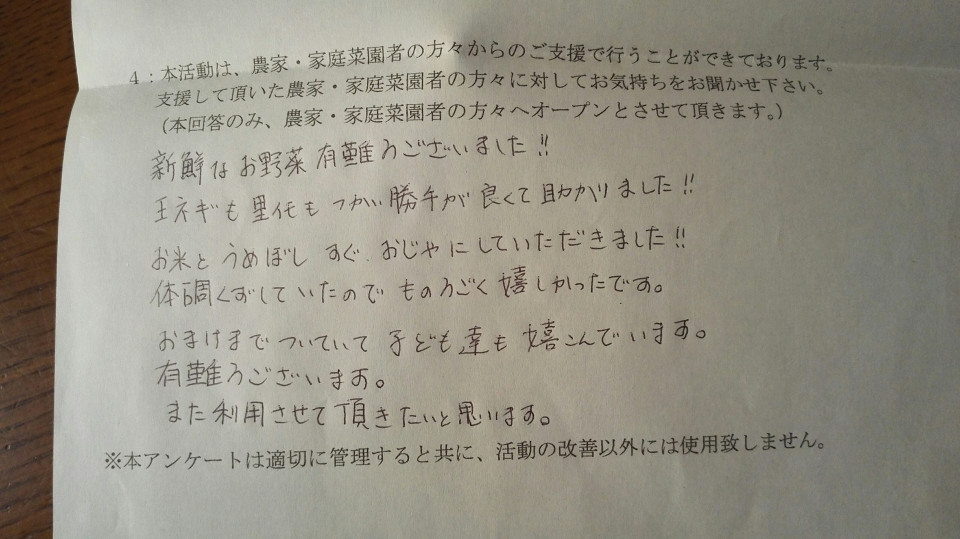 4：本活動は、農家・家庭菜園者の方々からのご支援で行うことができております。
支援して頂いた農家・家庭菜園者の方々に対してお気持ちをお聞かせ下さい。
（本回答のみ、農家・家庭菜園者の方々へオープンとさせて頂きます。）
新鮮なお野菜有難うございました!!
玉ネギも里芋もつかい勝手が良くて助かりました!!
お米とうめぼしすぐ、おじやにしていただきました!!
体調くずしていたのでものすごく嬉しかったです。
おまけまでついていて子ども達も嬉こんでいます。
有難うございます。
また利用させて頂きたいと思います。
※本アンケートは適切に管理すると共に、活動の改善以外には使用致しません。